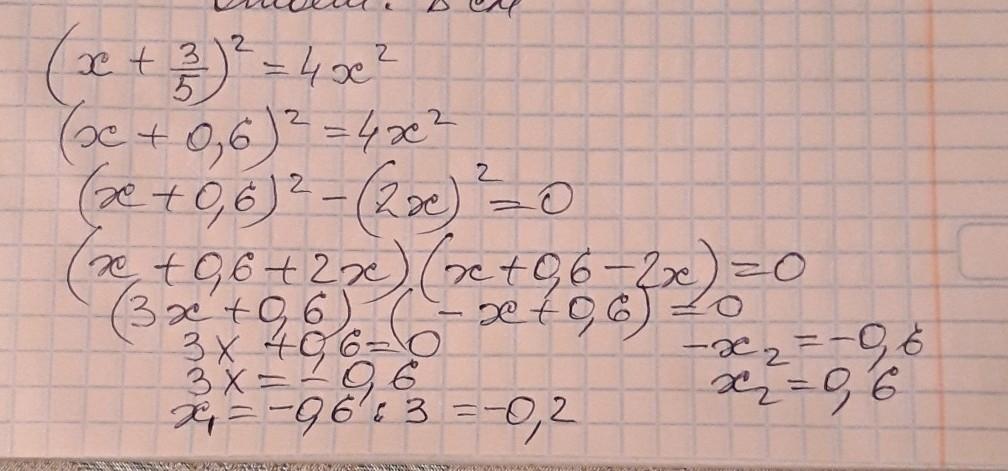 (x + 3/5)² = 4x²
(x + 0,6)² = 4x²
(x + 0,6)² - (2x)² = 0
(x + 0,6 + 2x)(x + 0,6 - 2x) = 0
(3x + 0,6) (-x + 0,6) = 0
3x + 0,6 = 0 -x₂ = -0,6
3x = -0,6 x₂ = 0,6
x₁ = -0,6 : 3 = -0,2